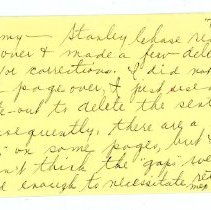 my — Stanley Chase re
over & made a few dele
or corrections. I did no
page over, & just use
out to delete the sen
sequently, there are a
on some pages, but
n't think the "gap" w
be enough to necessitate re